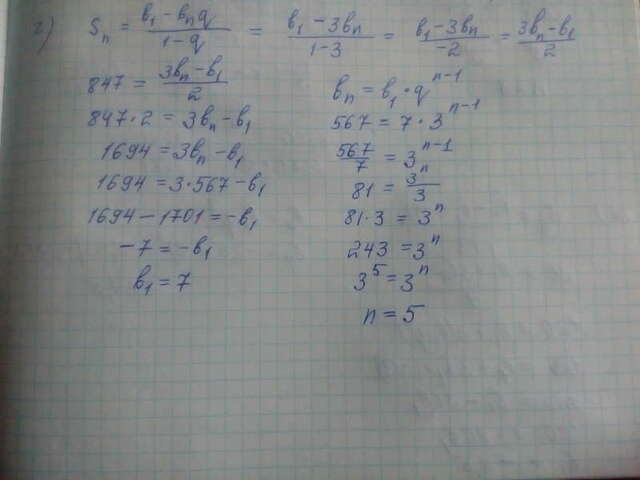 г) Sₙ = (b₁ - bₙq)/(1 - q) = (b₁ - 3bₙ)/(1 - 3) = (b₁ - 3bₙ)/(-2) = (3bₙ - b₁)/2
847 = (3bₙ - b₁)/2
847 · 2 = 3bₙ - b₁
1694 = 3bₙ - b₁
1694 = 3 · 567 - b₁
1694 - 1701 = -b₁
-7 = -b₁
b₁ = 7
bₙ = b₁ · qⁿ⁻¹
567 = 7 · 3ⁿ⁻¹
567/7 = 3ⁿ⁻¹
81 = 3ⁿ/3
81 · 3 = 3ⁿ
243 = 3ⁿ
3⁵ = 3ⁿ
n = 5